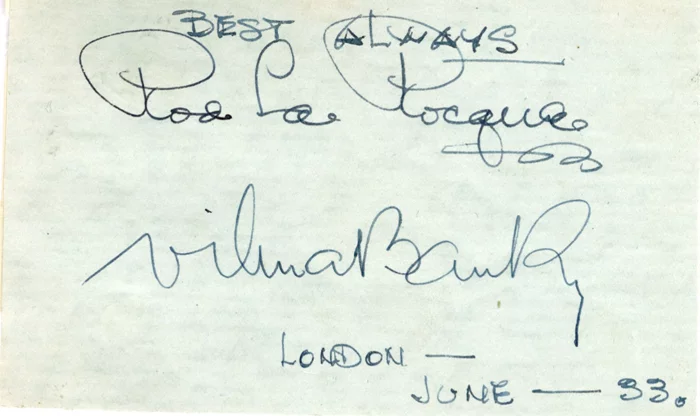 BEST ALWAYS
Rod La Rocque
Vilma Banky
LONDON —
JUNE — 33.